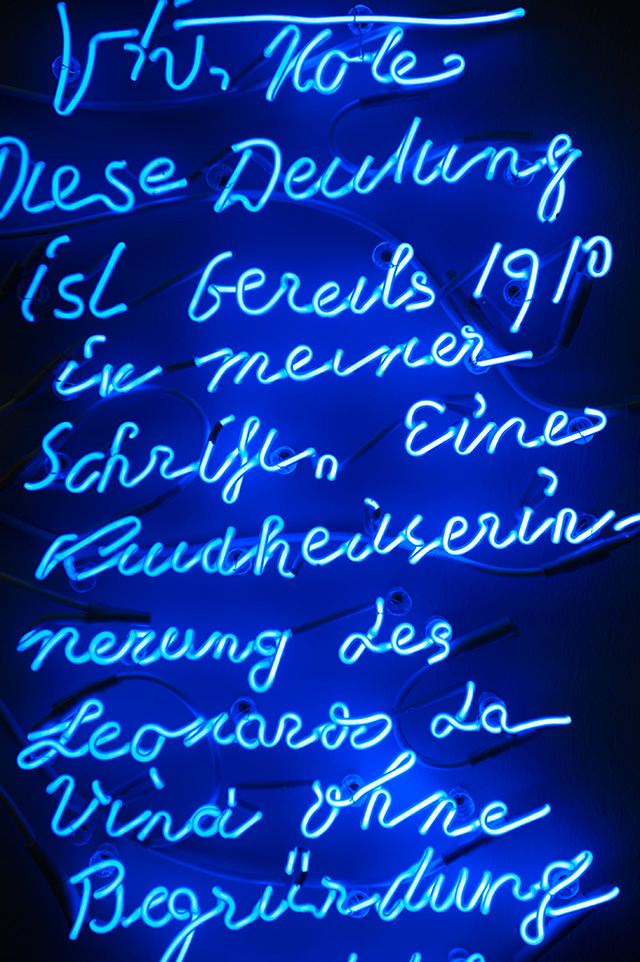 Note
Diese Deutung
ist bereits 1910
in meiner
Schrift „Eine
Kindheitserin-
nerung des
Leonardo da
Vinci ohne
Begründung